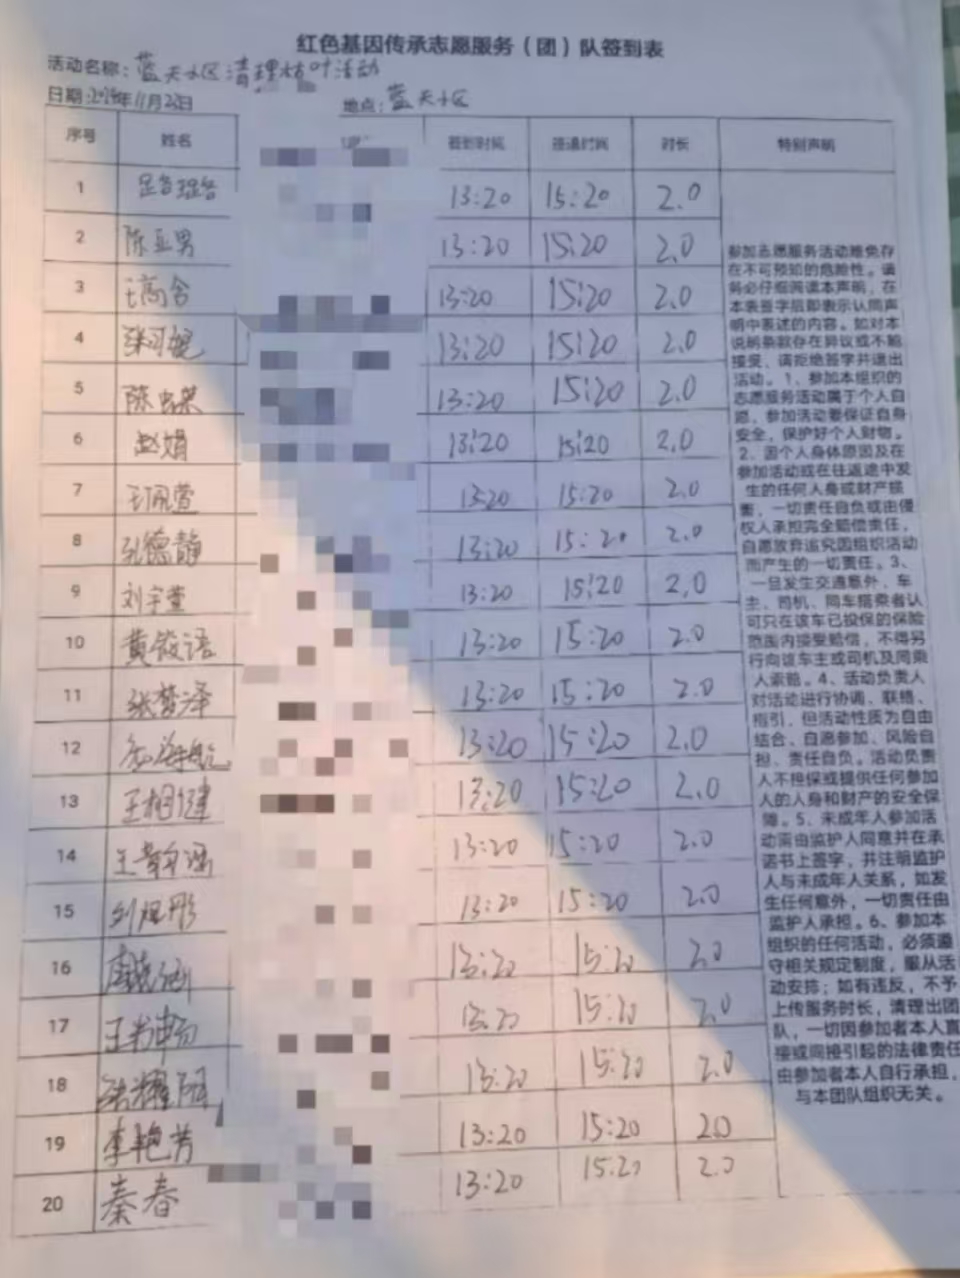 红色基因传承志愿服务（团）队签到表
活动名称：蓝天小区清理枯叶活动
日期：年11月23日 地点：蓝天小区
序号 姓名 签到时间 签退时间 时长 特别声明
1 13:20 15:20 2.0
2 陈亚男 13:20 15:20 2.0
3 13:20 15:20 2.0
4 13:20 15:20 2.0
5 13:20 15:20 2.0
6 赵娟 13:20 15:20 2.0
7 王佩萱 13:20 15:20 2.0
8 孔德静 13:20 15:20 2.0
9 刘宇萱 13:20 15:20 2.0
10 黄筱语 13:20 15:20 2.0
11 张梦泽 13:20 15:20 2.0
12 13:20 15:20 2.0
13 王相健 13:20 15:20 2.0
14 13:20 15:20 2.0
15 13:20 15:20 2.0
16 13:20 15:20 2.0
17 13:20 15:20 2.0
18 13:20 15:20 2.0
19 李艳芳 13:20 15:20 2.0
20 秦春 13:20 15:20 2.0
参加志愿服务活动难免存
在不可预知的危险性。请
务必仔细阅读本声明，在
本表签字后即表示认同声
明中表述的内容。如对本
说明条款存在异议或不能
接受、请拒绝签字并退出
活动。1、参加本组织的
志愿服务活动属于个人自
愿、参加活动要保证自身
安全，保护好个人财物。
2、因个人身体原因及在
参加活动或在往返途中发
生的任何人身或财产损
害，一切责任自负或由侵
权人承担完全赔偿责任，
自愿放弃追究因组织活动
而产生的一切责任。3、
一旦发生交通意外、车
主、司机、同车搭乘者认
可只在该车已投保的保险
范围内接受赔偿，不得另
行向该车主或司机及同乘
人索赔。4、活动负责人
对活动进行协调、联络、
指引，但活动性质为自由
结合、自愿参加、风险自
担、责任自负。活动负责
人不担保或提供任何参加
人的人身和财产的安全保
障。5、未成年人参加活
动需由监护人同意并在承
诺书上签字，并注明监护
人与未成年人关系，如发
生任何意外，一切责任由
监护人承担。6、参加本
组织的任何活动，必须遵
守相关规定制度，服从活
动安排；如有违反，不予
上传服务时长，清理出团
队，一切因参加者本人直
接或间接引起的法律责任
由参加者本人自行承担，
与本团队组织无关。